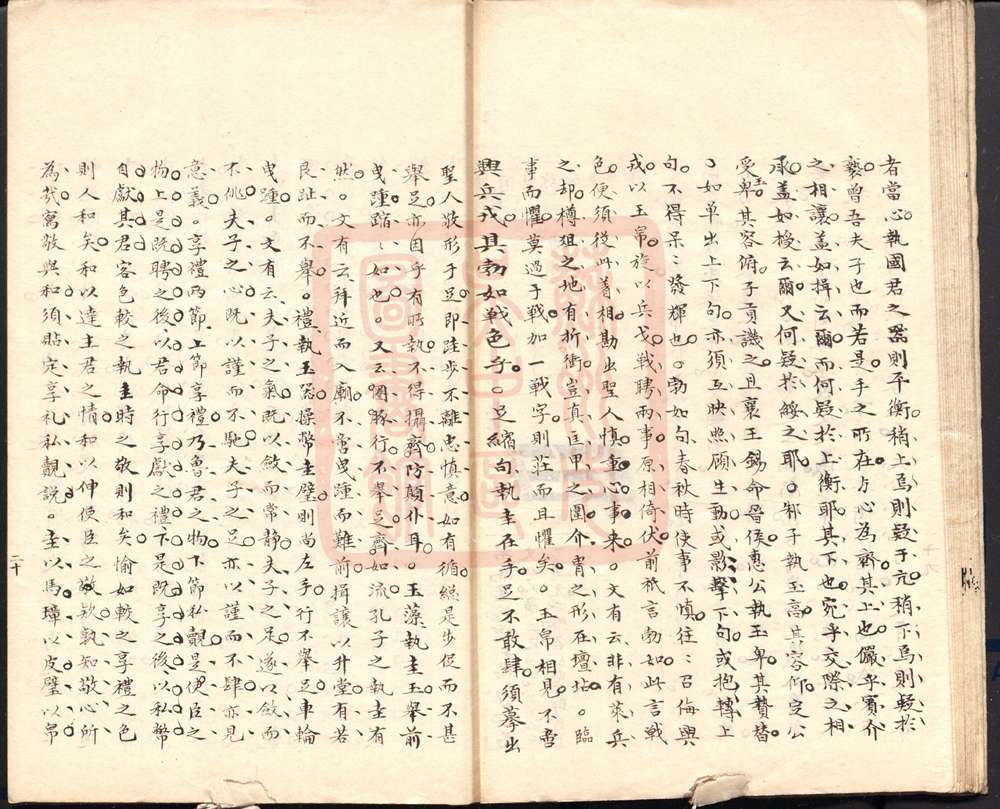 者當心執國君之器則平衡稍上焉則疑于亢稍下焉則疑於
褻曾吾夫子也而若是乎手之所在与心為齊其上也儼乎賓介
之相讓蓋如揖云爾而何疑於上衡耶其下也宛乎交際之相
承蓋如授云爾又何疑於綏之耶。邾子執玉高其容仰定公
受玉卑其容俯子貢譏之且襄王錫命晉侯惠公執玉卑其贄替
如单出上下句亦須互映照顧生動或影擊下句或抱轉上
句不得呆〻發輝也。勃如句春秋時使事不慎往〻召侮興
戎以玉帛旋以兵戈戰聘兩事原相倚伏前祇言勃如此言戰
色便須從此着相勘出聖人慎重心事来。文有云非有萊兵
之却樽俎之地有折衝豈真匡甲之圍介冑之形在壇坫。臨
事而懼莫過于戦加一戦字則莊而且懼矣。玉帛相見不啻
興兵戎其勃如戰色乎。足縮句執圭在手足不敢肆須摹出
聖人敬形于足即跬步不離忠慎意如有循緦是步促而不甚
舉足亦因手有所執不得攝齊防顛仆耳。玉藻執圭玉舉前
曳踵蹜〻如也。又云圈豚行不舉足齊如流孔子之執圭有
然。文有云拜近而入廟不啻曳踵而難前揖讓以升堂有若
艮趾而不舉。禮執玉器操幣圭璧則尚左手行不舉足車輪
曳踵。文有云夫子之氣既以斂而常静夫子之足遂以斂而
不佻夫子之心既以謹而不馳夫子之足亦以謹而不肆亦見
意義。享禮两節上節享禮乃魯君之物下節私覿是使臣之
物上是既聘之後以君命行享獻之禮下是既享之後以私幣
自獻其君容色較之執圭時之敬則和矣愉如較之享禮之色
則人和矣和以達主君之情和以伸使臣之敬欵孰知敬心所
為哉寓敬與和須貼定享礼私覿説。圭以馬璋以皮璧以帛
二十